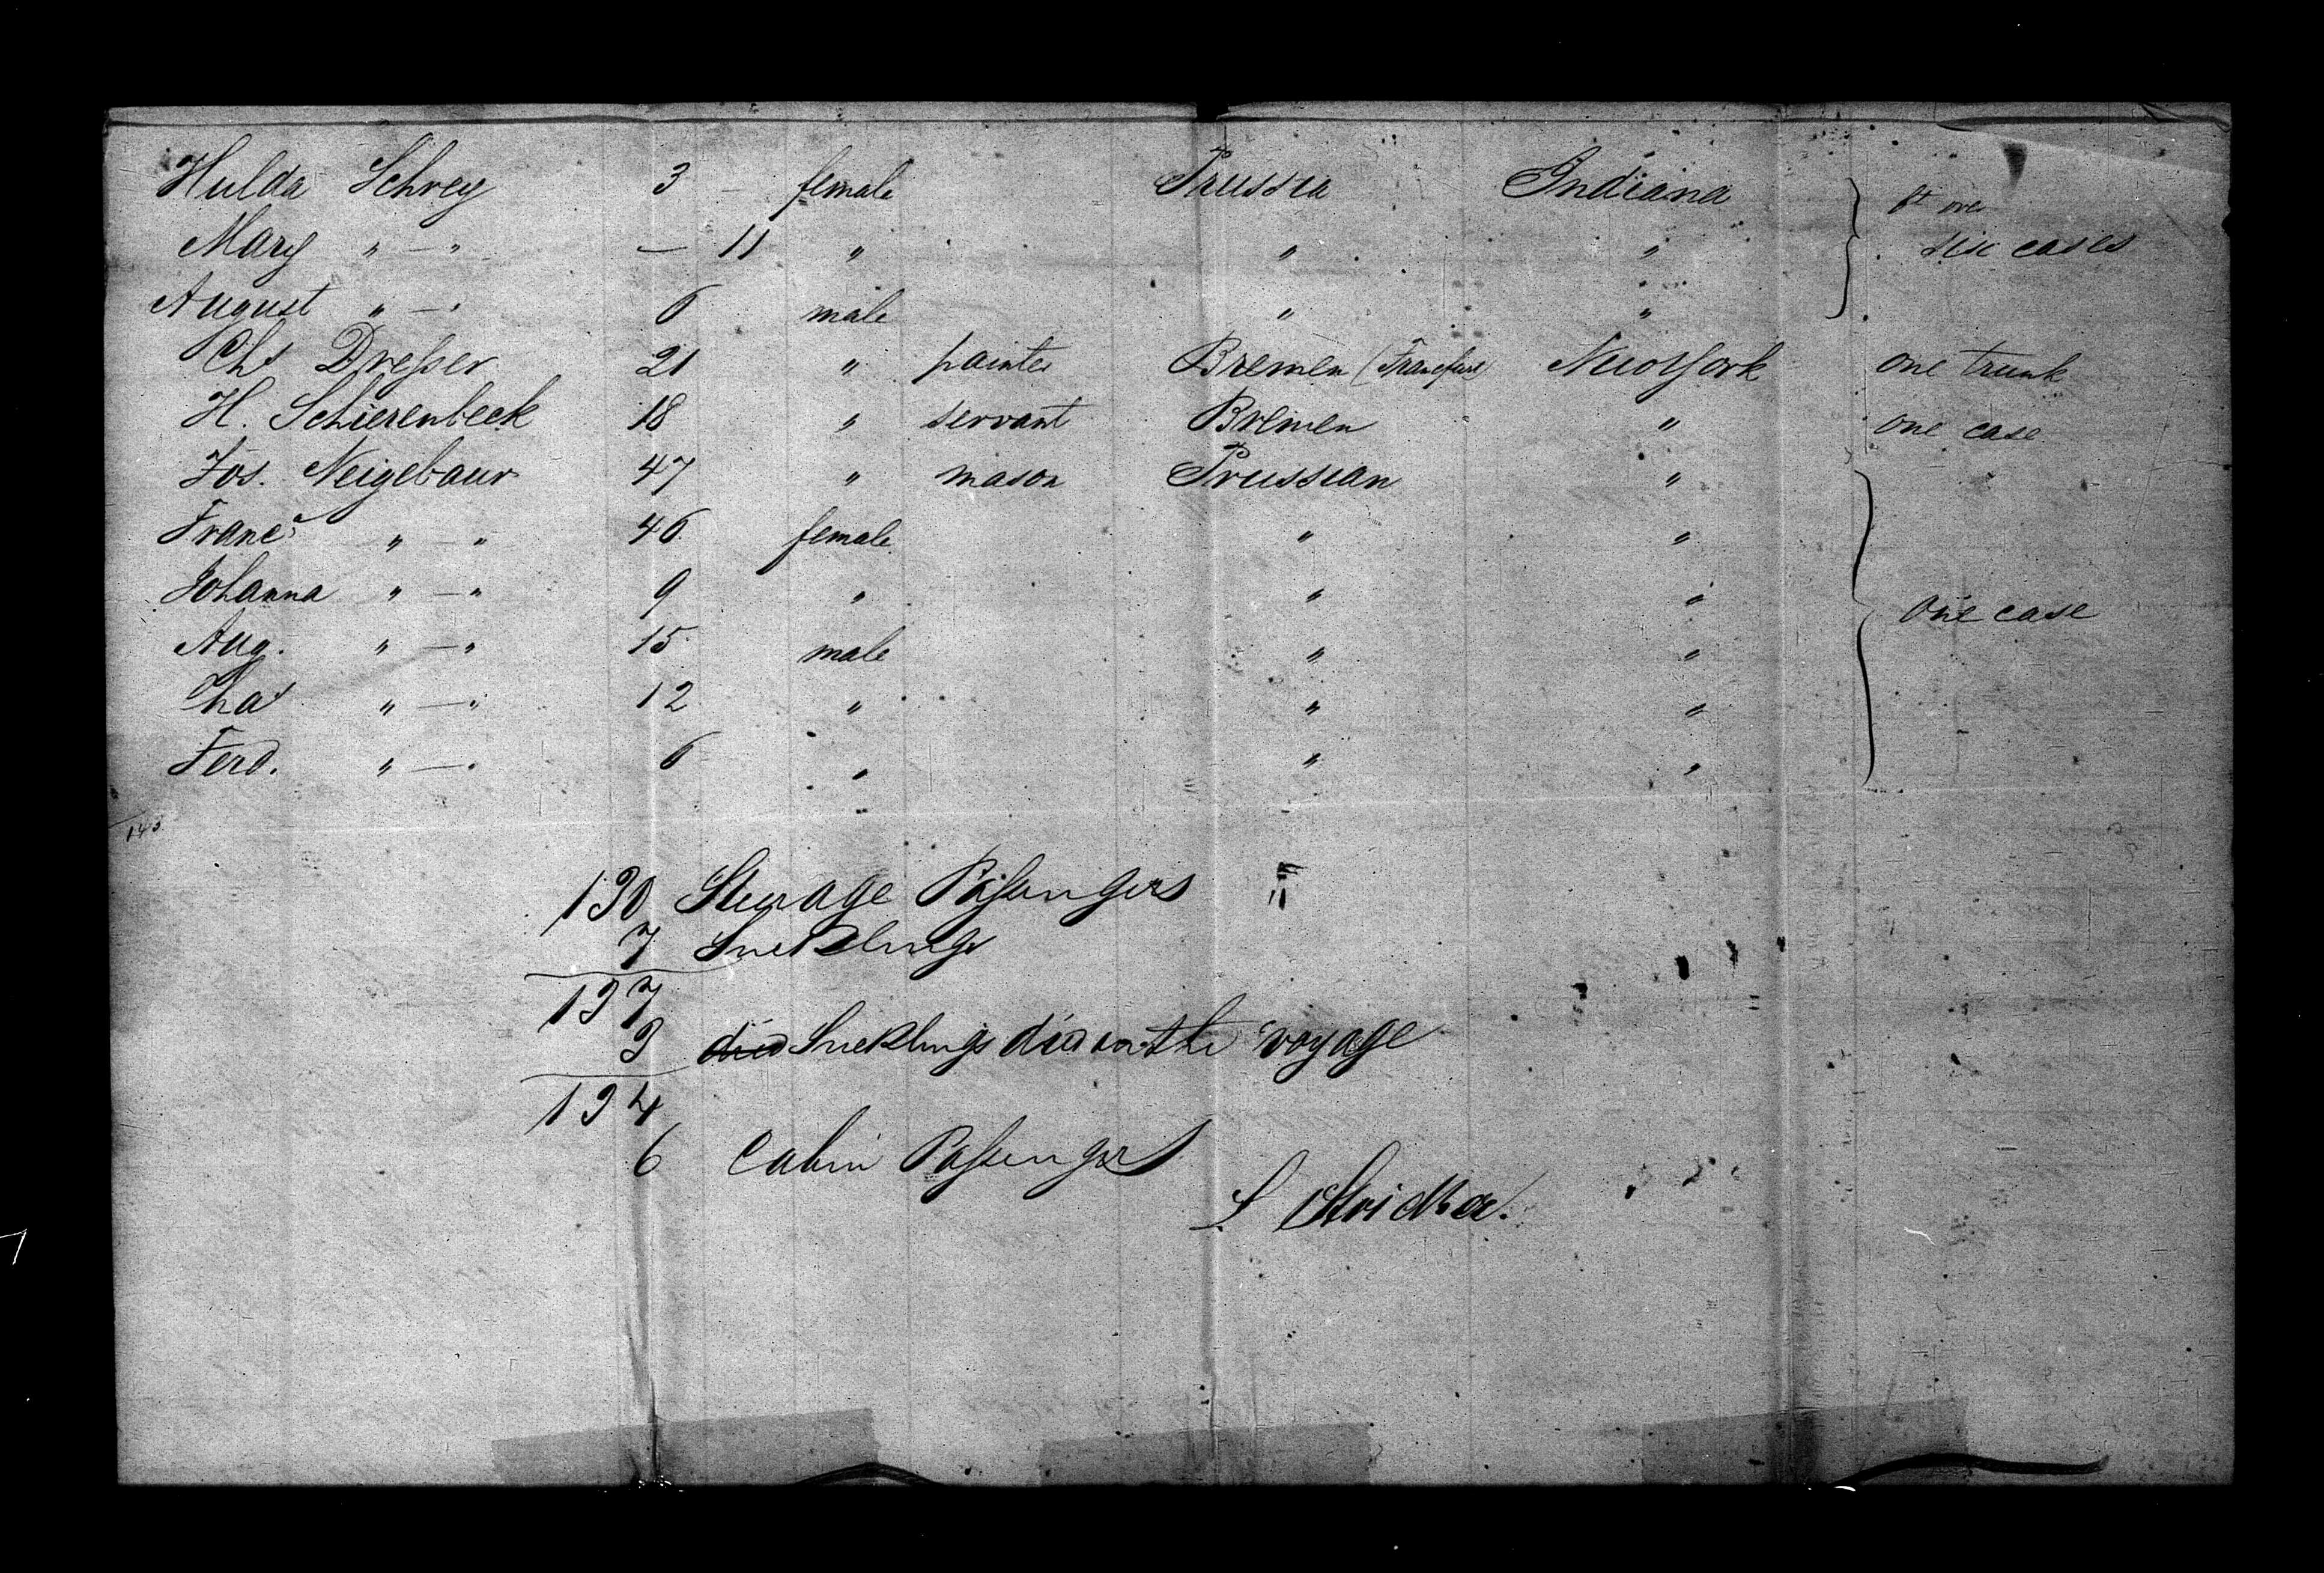 Hulda Schrey 3 – female Prussia Indiana
Mary " — " — 11 " " " six cases
August " — " 6 male " "
Chs Dresser 21 " painter Bremen (Francfurt) New York one trunk
H. Schierenbeck 18 " servant Bremen " one case
Jos. Neigebaur 47 " mason Prussian "
Franc. " — " 46 female " "
Johanna " — " 9 " " " One case
Aug. " — " 15 male " "
Chas " — " 12 " " "
Ferd. " — " 6 " " "
143
130 Steerage Passengers
7 Sucklings
137
3 died Sucklings died on the voyage
134
6 Cabin Passengers